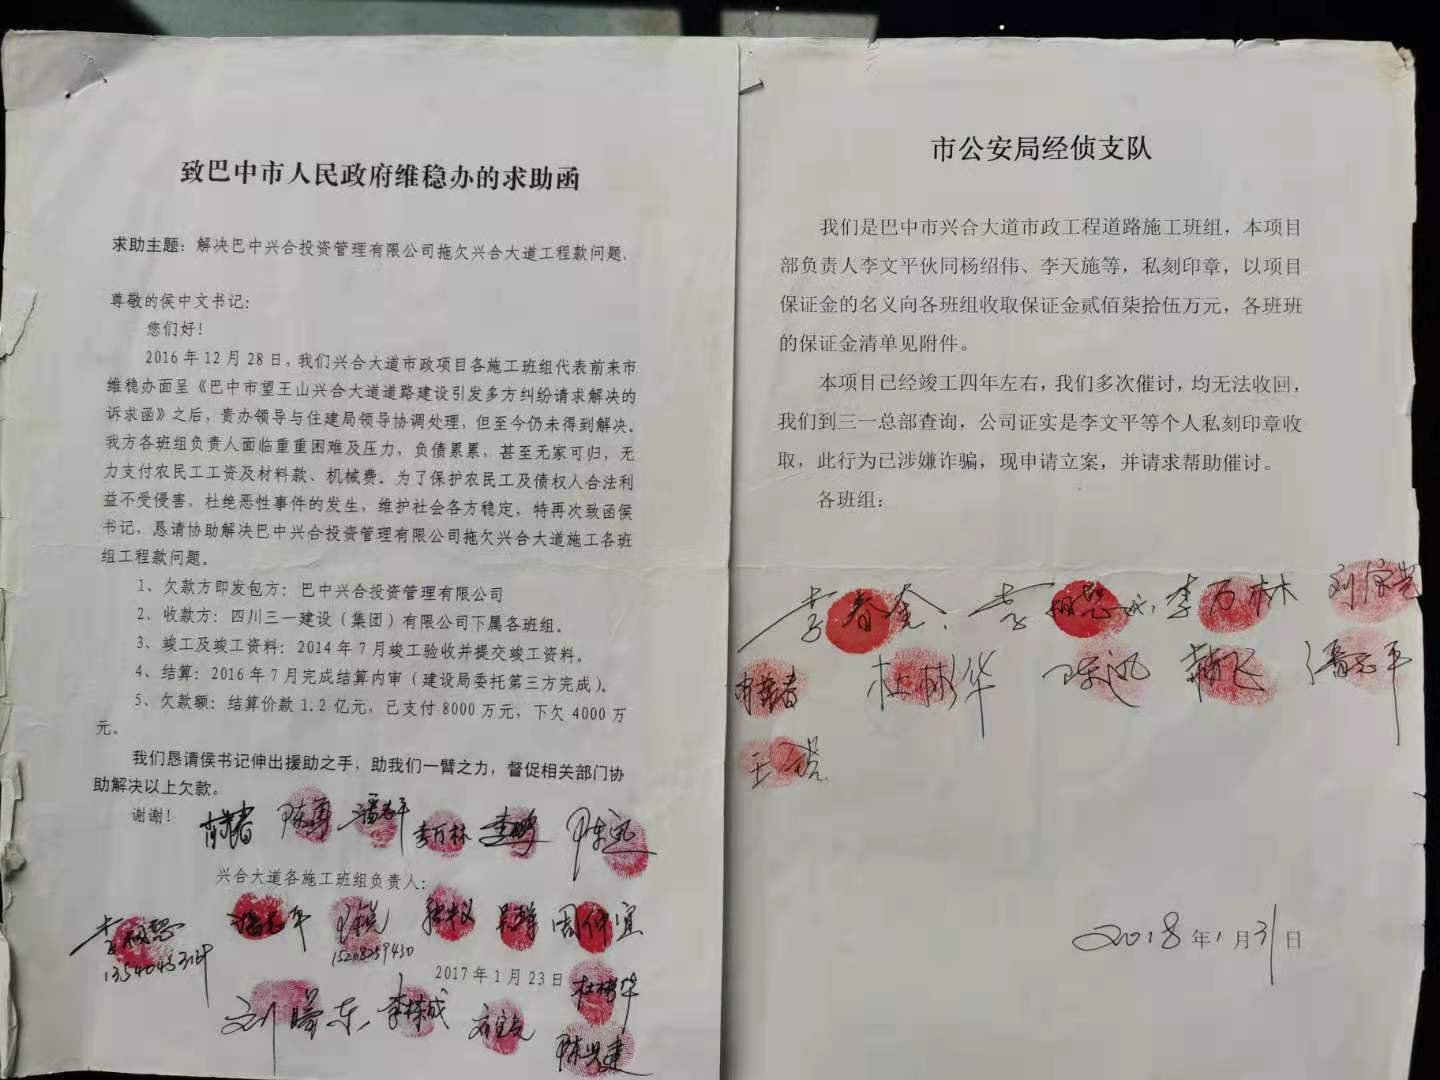 致巴中市人民政府维稳办的求助函
求助主题：解决巴中兴合投资管理有限公司拖欠兴合大道工程款问题、
尊敬的侯中文书记：
您们好！
2016年12月28日，我们兴合大道市政项目各施工班组代表前来市
维稳办面呈《巴中市望王山兴合大道道路建设引发多方纠纷请求解决的
诉求函》之后，贵办领导与住建局领导协调处理，但至今仍未得到解决。
我方各班组负责人面临重重困难及压力，负债累累，甚至无家可归，无
力支付农民工工资及材料款、机械费。为了保护农民工及债权人合法利
益不受侵害，杜绝恶性事件的发生，维护社会各方稳定，特再次致函侯
书记，恳请协助解决巴中兴合投资管理有限公司拖欠兴合大道施工各班
组工程款问题。
1、欠款方即发包方：巴中兴合投资管理有限公司
2、收款方：四川三一建设（集团）有限公司下属各班组。
3、竣工及竣工资料：2014年7月竣工验收并提交竣工资料。
4、结算：2016年7月完成结算内审（建设局委托第三方完成）。
5、欠款额：结算价款1.2亿元，已支付8000万元，下欠4000万
元。
我们恳请侯书记伸出援助之手，助我们一臂之力，督促相关部门协
助解决以上欠款。
谢谢！
陈勇 潘志平 李万林 李鹏 陈迅
兴合大道各施工班组负责人：
潘志平 周仲宜
15208259430
2017年1月23日
杜彬华
刘晓东 李栋成
陈兴建
市公安局经侦支队
我们是巴中市兴合大道市政工程道路施工班组，本项目
部负责人李文平伙同杨绍伟、李天施等，私刻印章，以项目
保证金的名义向各班组收取保证金贰佰柒拾伍万元，各班班
的保证金清单见附件。
本项目已经竣工四年左右，我们多次催讨，均无法收回，
我们到三一总部查询，公司证实是李文平等个人私刻印章收
取，此行为已涉嫌诈骗，现申请立案，并请求帮助催讨。
各班组：
李春奎 李万林
杜彬华 陈迅 潘志平
王锐
2018年1月31日